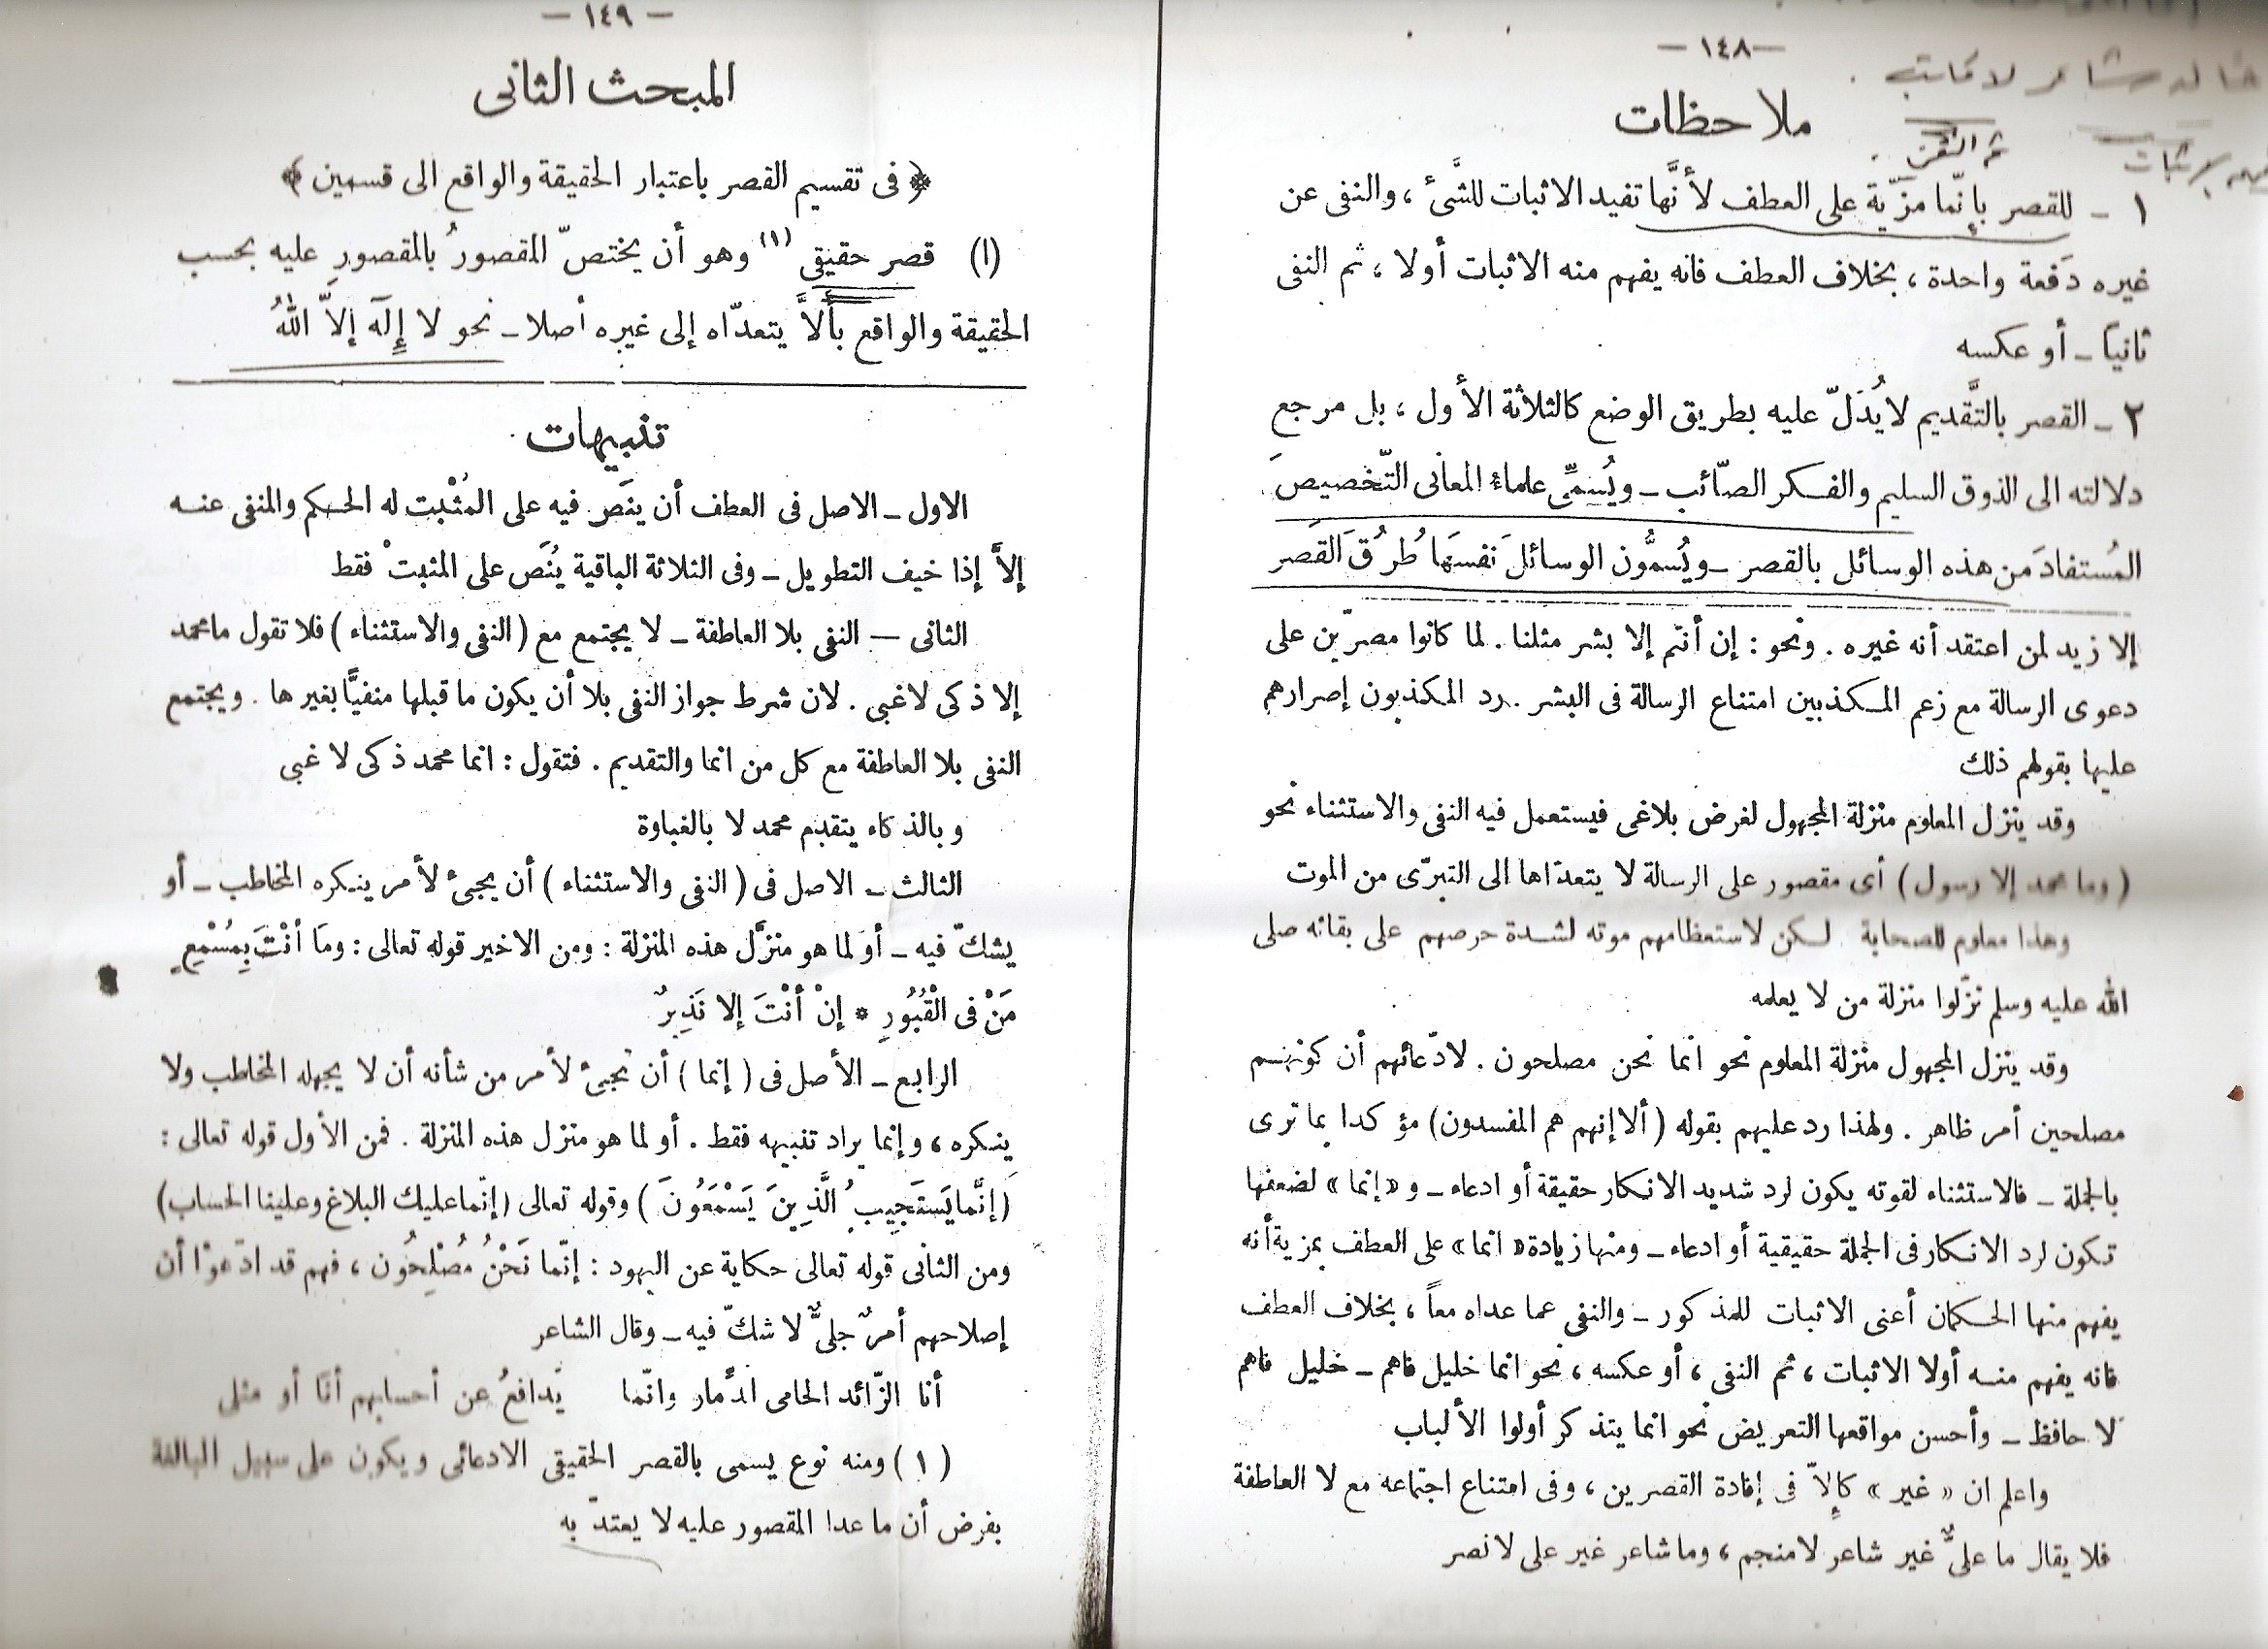 — ١٤٨ —
ملاحظات
ثم النفى
١ - للقصر بإنّما مزّية على العطف لأنَّها تفيد الاثبات للشَّئ ، والنفى عن
غيره دَفعة واحدة ، بخلاف العطف فانه يفهم منه الاثبات أولا ، ثم النفى
ثانياً - أو عكسه
٢ - القصر بالتَّقديم لا يُدَلّ عليه بطريق الوضع كالثلاثة الأول ، بل مرجع
دلالته الى الذوق السليم والفكر الصّائب - ويُسمِّى علماء المعانى التّخصيصَ
المُستفادَ من هذه الوسائل بالقصر - ويُسمُّون الوسائلَ نفسَها طُرُقَ القَصر
إلا زيد لمن اعتقد أنه غيره . ونحو : إن أنتم إلا بشر مثلنا . لما كانوا مصرّين على
دعوى الرسالة مع زعم المكذبين امتناع الرسالة فى البشر . رد المكذبون إصرارهم
عليها بقولهم ذلك
وقد ينزل المعلوم منزلة المجهول لغرض بلاغى فيستعمل فيه النفى والاستثناء نحو
( وما محمد إلا رسول ) أى مقصور على الرسالة لا يتعداها الى التبرّى من الموت
وهذا معلوم للصحابة لكن لاستعظامهم موته لشدة حرصهم على بقائه صلى
الله عليه وسلم نزّلوا منزلة من لا يعلمه
وقد ينزل المجهول منزلة المعلوم نحو انما نحن مصلحون . لادّعائهم أن كونهم
مصلحين أمر ظاهر . ولهذا رد عليهم بقوله ( ألا إنهم هم المفسدون ) مؤكدا بما ترى
بالجملة - فالاستثناء لقوته يكون لرد شديد الانكار حقيقة أو ادعاء - و « إنما » لضعفها
تكون لرد الانكار فى الجملة حقيقية أو ادعاء - ومنها زيادة « انما » على العطف بمزية أنه
يفهم منها الحكمان أعنى الاثبات للمذكور - والنفى عما عداه معاً ، بخلاف العطف
فانه يفهم منه أولا الاثبات ، ثم النفى ، أو عكسه ، نحو انما خليل فاهم - خليل فاهم
لا حافظ - وأحسن مواقعها التعريض نحو انما يتذكر أولوا الألباب
واعلم ان « غير » كإلاّ فى إفادة القصرين ، وفى امتناع اجتماعه مع لا العاطفة
فلا يقال ما علىٌّ غير شاعر لا منجم ، وما شاعر غير على لا نصر
— ١٤٩ —
المبحث الثانى
﴿ فى تقسيم القصر باعتبار الحقيقة والواقع الى قسمين ﴾
(ا) قصر حقيقى (١) وهو أن يختصّ المقصورُ بالمقصورِ عليه بحسب
الحقيقة والواقع بألاَّ يتعدّاه إلى غيره أصلا - نحو لا إِلَهَ إلاَّ اللهُ
تنبيهات
الاول - الاصل فى العطف أن ينَص فيه على المُثْبت له الحكم والمنفى عنه
إلاَّ إذا خيف التطويل - وفى الثلاثة الباقية يُنَص على المثبتْ فقط
الثانى — النفى بلا العاطفة - لا يجتمع مع ( النفى والاستثناء ) فلا تقول ما محمد
إلا ذكى لا غبى . لان شرط جواز النفى بلا أن يكون ما قبلها منفيًّا بغيرها . ويجتمع
النفى بلا العاطفة مع كل من انما والتقديم . فتقول : انما محمد ذكى لا غبى
وبالذكاء يتقدم محمد لا بالغباوة
الثالث - الاصل فى ( النفى والاستثناء ) أن يجىء لأمر ينكره المخاطب - أو
يشكّ فيه - أو لما هو منزَّل هذه المنزلة : ومن الاخير قوله تعالى : ومَا أنْتَ بِمُسْمِعٍ
مَنْ فى الْقُبُورِ * إنْ أنْتَ إلا نَذِيرٌ
الرابع - الأصل فى ( إنما ) أن تجىء لأمر من شأنه أن لا يجهله المخاطب ولا
ينكره ، وإنما يراد تنبيهه فقط . أو لما هو منزل هذه المنزلة . فمن الأول قوله تعالى :
( إنَّما يَستَجِيبُ الَّذِينَ يَسْمَعُونَ ) وقوله تعالى ( إنّما عليك البلاغ وعلينا الحساب )
ومن الثانى قوله تعالى حكاية عن اليهود : إنّما نَحْنُ مُصْلِحُون ، فهم قد ادّعوْا أن
إصلاحهم أمرٌ جلىٌّ لا شكّ فيه - وقال الشاعر
أنا الزّائد الحامى الذّمار وانّما يُدافعُ عن أحسابهم أنَا أو مثلى
( ١ ) ومنه نوع يسمى بالقصر الحقيقى الادعائى ويكون على سبيل المبالغة
بفرض أن ما عدا المقصور عليه لا يعتدّ به